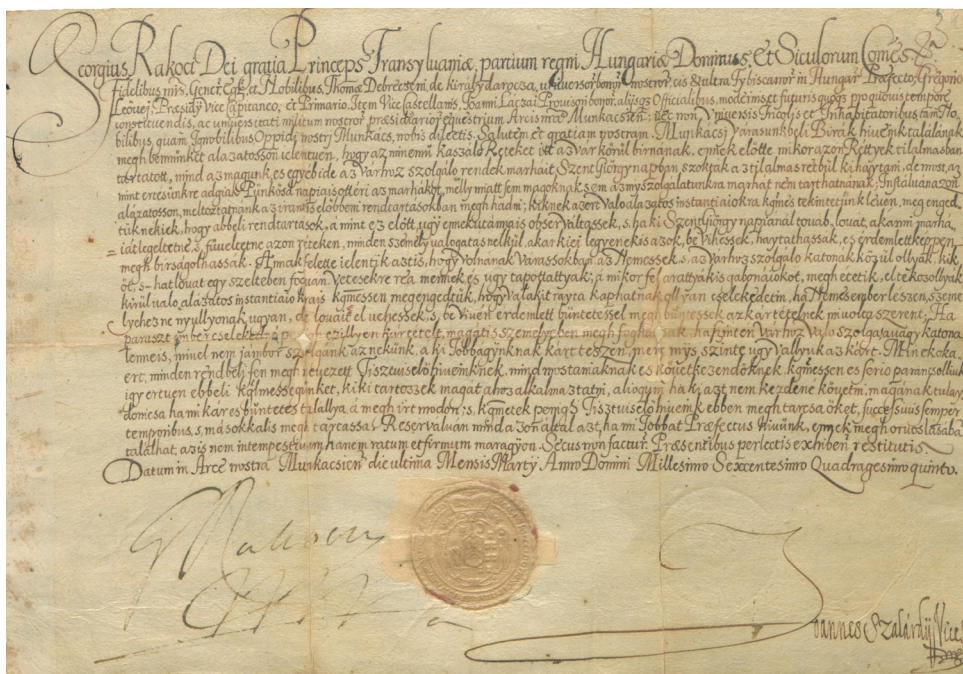 Georgius Rakoci Dei gratia Princeps Transylvaniæ, partium regni Hungariæ Dominus, Et Siculorum Comes &a
Fidelibus nris, Gener. Egr. et Nobilibus, Thomæ Debreczeni, de Királydarocza, universor bonor nostror, cis et ultra Tybiscanor in Hungar. Præfecto, Gregorio
Præsidij Vice Capitaneo, et Primario, Item Vice Castellanis, Joanni Laczai Provisori bonor, aliisqs Officialibus, modernis et futuris quoqs pro quovis tempore
constituendis, ac universitati militum nostror præsidiarior equestrium Arcis nræ Munkacsien; nec non, Universis Incolis et Inhabitatoribus tam No-
bilibus, quam Ignobilibus Oppidi nostri Munkács, nobis dilectis. Salutem et gratiam nostram. Munkácsi Várasunkbeli Birák hiveink találának
megh bennünket alázatosson jelentven, hogy az minemű kaszáló Réteket itt az Var körül birnanak, ennek előtte mikor azon Rettyek tilalmasban
tartatott, mind az magunk, es egyebide az Várhoz szolgáló rendek marháit Szent György napban szoktak az tilalmas rétbül kihaytani, de most, az
mint ertesünkre adgiak Pünkösd napiais ottéri az marhákot, melly miatt sem magoknak, sem az my szolgalatunkra marhát nem tarthatnának; Instálván azon
alázatosson, meltóztatnánk az iránt is előbbeni rendtartásokban megh hadni; kiknek azért való alázatos instantiájokra kgmes tekintetünk lévén, megenged-
tük nekiek, hogy abbeli rendtartások, a mint ez előtt, ugy ennekutannais observáltassek, s ha ki Szent György napjánál tovab, lovát, akármi marhá-
iát legeltetne, s füveltetne azon réteken, minden személy valogatas nelkül, akar kiei legyenek is azok, be vihessek, haythathassák, es erdemlett keppen
megh birságolhassák. Annak felette jelentik azt is, hogy volnanak Varassokban az Nemessek, s az Várhoz szolgáló katonák közül ollyák, kik
öt, s hat lovat egy szeltében fogván, Vetesekre rea mennek és ugy tapottattyak; a mikor felarattyák is gabonáiokot, meghetetik, eltékozollyák
körül való alázatos instantiáiokrais kgmessen megengedtük, hogy valakit rayta kaphatnak ollyan cselekedetin, ha Nemes ember leszen, szemé-
lyehez ne nyullyonak ugyan, de lovait el vehessek s, be vivén érdemlett büntetéssel megh büntessek az kartételnek mivolta szerent; Ha
paraszt ember cselekedi, a penigh ezillyen kartetelt, magát is szemelyeben megh foghassanak, ha szinten Varhoz való szolga, avagy katona
lenneis, mivel nem jámbor szolgánk az nekünk, a ki Jobbagyinknak kart teszen, mert mys szinte ugy Vallyuk az kárt. Minekoka-
ert, minden rendbeli fen meghnevezett Tisztviselő hiveinknek, mind mostaniaknak és következendőknek, kgmessen es serio parancsollyuk
igy értven ebbeli kglmessegünket, ki ki tartozzek magát ahoz alkalmaztatni, alioquin, ha ki azt nem kezdené követni, magának tulay-
donicsa ha mi kár es büntetés talállya, a megh irt modon; s, kgmetek penigs Tisztviselő hiveink ebben meghtarcsa őket, successivis semper
temporibus, s másokkalis megh tartassa. Reserválván mind az által azt, ha mi Jobbat Præfectus hivünk, ennek megh orvoslásában
találhat, az is nem intempestivum hanem ratum et firmum maragyon. Secus non factur. Præsentibus perlectis exhiben. restitutis.
Datum in Arce nostra Munkacsien. die ultima Mensis Martij Anno Domini Millesimo Sexcentesimo Quadragesimo quinto.
G Rakoczi
Joannes Szalárdij Vice